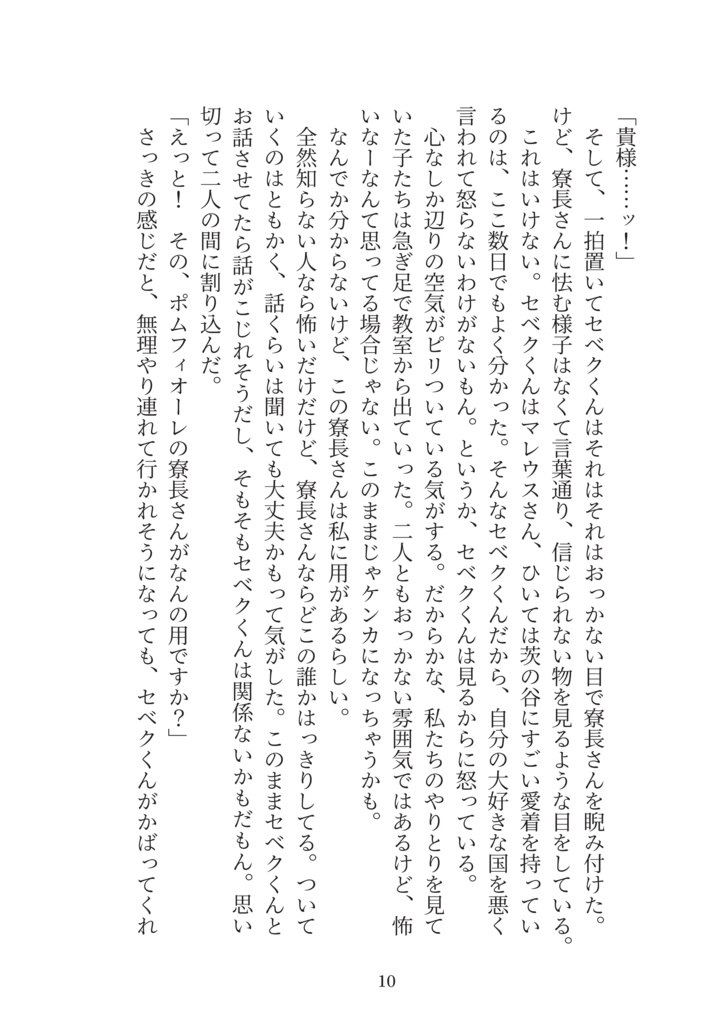 「貴様……ッ！」
　そして、一拍置いてセベクくんはそれはそれはおっかない目で寮長さんを睨み付けた。
けど、寮長さんに怯む様子はなくて言葉通り、信じられない物を見るような目をしている。
　これはいけない。セベクくんはマレウスさん、ひいては茨の谷にすごい愛着を持ってい
るのは、ここ数日でもよく分かった。そんなセベクくんだから、自分の大好きな国を悪く
言われて怒らないわけがないもん。というか、セベクくんは見るからに怒っている。
　心なしか辺りの空気がピリついている気がする。だからかな、私たちのやりとりを見て
いた子たちは急ぎ足で教室から出ていった。二人ともおっかない雰囲気ではあるけど、怖
いなーなんて思ってる場合じゃない。このままじゃケンカになっちゃうかも。
　なんでか分からないけど、この寮長さんは私に用があるらしい。
　全然知らない人なら怖いだけだけど、寮長さんならどこの誰かはっきりしてる。ついて
いくのはともかく、話くらいは聞いても大丈夫かもって気がした。このままセベクくんと
お話させてたら話がこじれそうだし、そもそもセベクくんは関係ないかもだもん。思い
切って二人の間に割り込んだ。
「えっと！　その、ポムフィオーレの寮長さんがなんの用ですか？」
　さっきの感じだと、無理やり連れて行かれそうになっても、セベクくんがかばってくれ
10